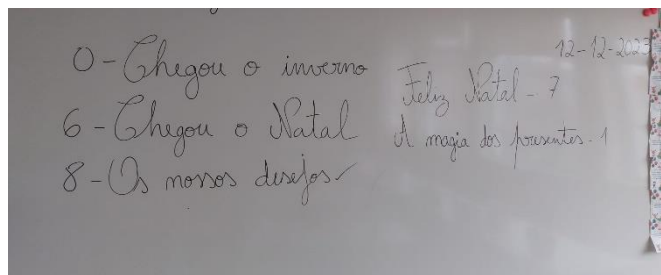 12-12-2023
0 - Chegou o inverno
6 - Chegou o Natal
8 - Os nossos desejos
Feliz Natal - 7
A magia dos presentes - 1